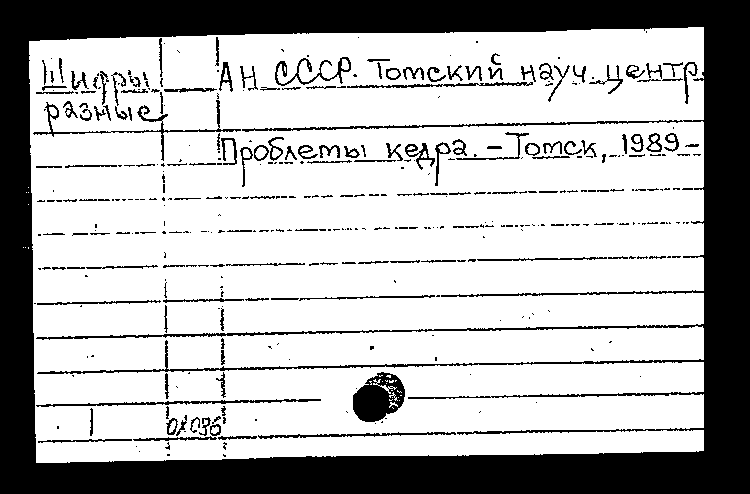 Шифры
разные
АН СССР. Томский науч. центр.
Проблемы кедра. – Томск, 1989 –